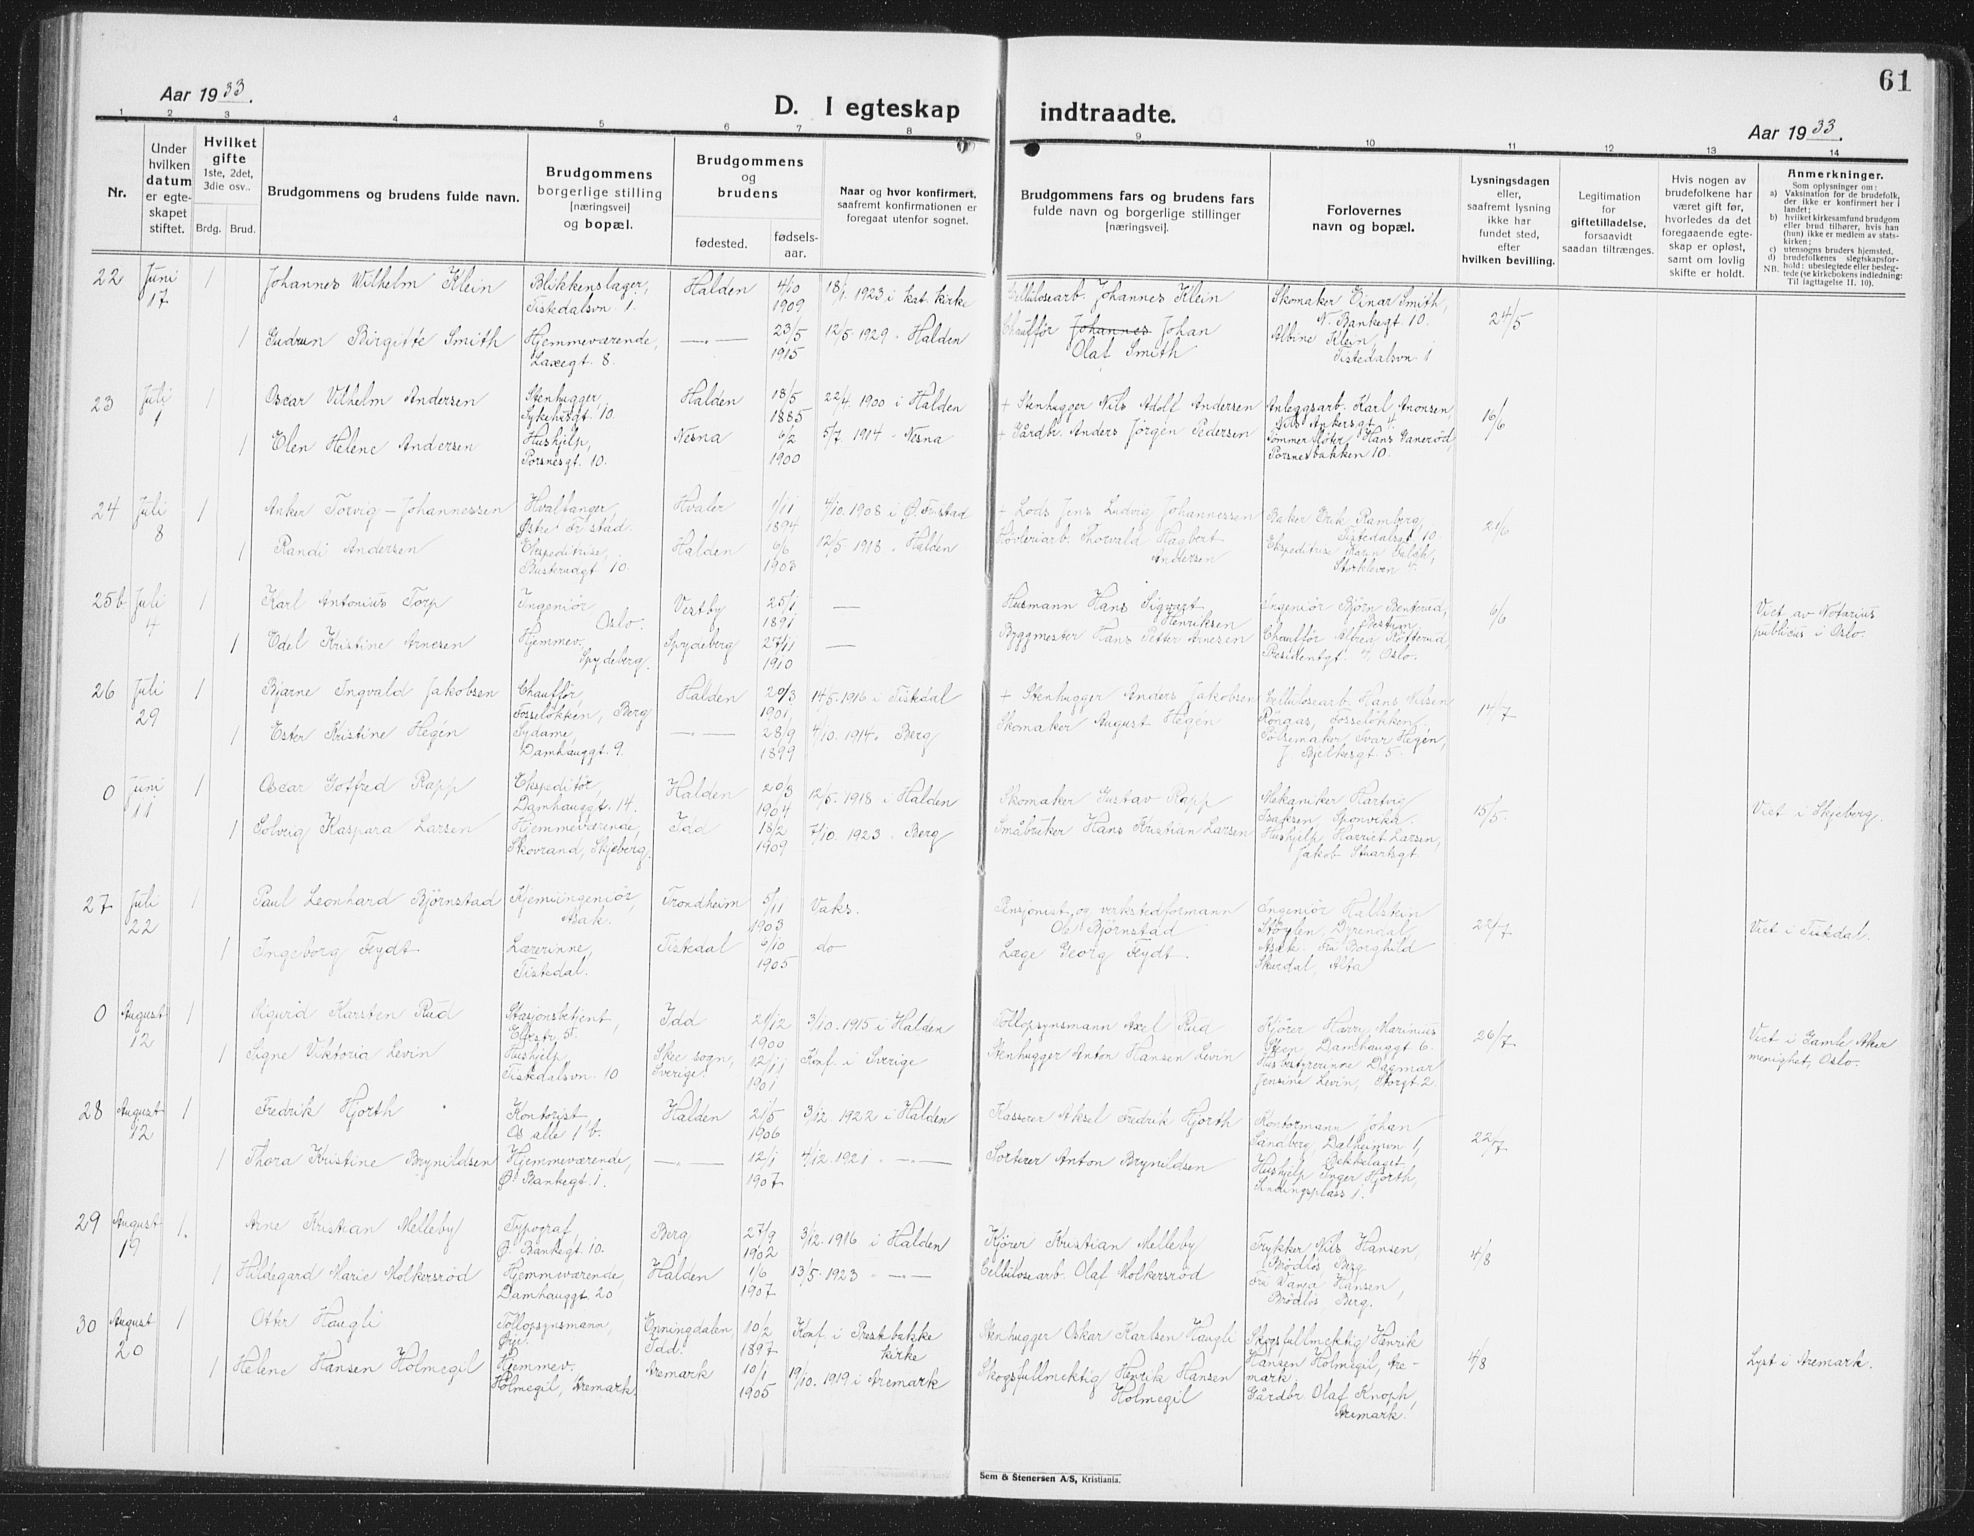 61
Aar 1933.
D. I egteskap indtraadte.
Aar 1933.
1 2 3 4 5 6 7 8 9 10 11 12 13 14
Nr.
Under hvilken datum er egteskapet stiftet.
Hvilket gifte 1ste, 2det, 3die osv..
Brdg. Brud.
Brudgommens og brudens fulde navn.
Brudgommens borgerlige stilling [næringsvei] og bopæl.
Brudgommens og brudens
fødested.
fødselsaar.
Naar og hvor konfirmert, saafremt konfirmationen er foregaat utenfor sognet.
Brudgommens fars og brudens fars fulde navn og borgerlige stillinger [næringsvei].
Forlovernes navn og bopæl.
Lysningsdagen eller, saafremt lysning ikke har fundet sted, efter hvilken bevilling.
Legitimation for giftetilladelse, forsaavidt saadan tiltrænges.
Hvis nogen av brudefolkene har været gift før, hvorledes da det foregaaende egteskap er opløst, samt om lovlig skifte er holdt.
Anmerkninger.
Som oplysninger om:
a) Vaksination for de brudefolk, der ikke er konfirmert her i landet;
b) hvilket kirkesamfund brudgom eller brud tilhører, hvis han (hun) ikke er medlem av statskirken;
c) utensogns bruders hjemsted,
d) brudefolkenes slegtskapsforhold: ubeslegtede eller beslegtede (se kirkebokens indledning:
NB. Til iagttagelse II. 10).
22 Juni 17 1 Johannes Wilhelm Klein Blikkenslager, Tistedalsvn 1. Halden 4/10 1909 18/1 1923 i kat. kirke Cellulosearb. Johannes Klein Skomaker Einar Smith, N. Bankegt 10. 24/5
1 Gudrun Birgitte Smith Hjemmeværende, Laxegt. 8. —"— 23/5 1915 12/5 1929 - Halden Chauffør Johannes Johan Olaf Smith Albine Klein, Tistedalsvn 1
23 Juli 1 1 Oscar Vilhelm Andersen Stenhugger, Sykehusgt. 10. Halden 18/5 1885 22/4. 1900 i Halden + Stenhugger Nils Adolf Andersen Anleggsarb. Karl Aronsen Nils Ankersgt 4. 16/6
1 Elen Helene Andersen Hushjelp, Porsnesgt. 10. Nesna 6/2 1900 5/7. 1914 - Nesna + Gårdbr. Anders Jørgen Pedersen Tømmerfløter Hans Vanerød, Porsnesbakken 10.
24 Juli 8 1 Anker Torvig-Johannessen Hvalfanger, Østre Fr.stad. Hvaler 1/11 1894 4/10. 1908 i Ø. Fr.stad + Lods Jens Ludvig Johannessen Baker Erik Ramberg, Tistedalsgt 10. 21/6
1 Randi Andersen Ekspeditrise, Busterudgt 10. Halden 6/6 1903 12/5 1918 - Halden Høvleriarb. Thorvald Hagbert Andersen Ekspeditrise Karin Falck, Storkleven 4.
25b Juli 4 1 Karl Antonius Torp Ingeniør Oslo. Vestby 25/1 1891 — Husmann Hans Sigvart Henriksen Ingeniør Bjørn Benterud, Bestum, 6/6 Viet av Notarius publicus i Oslo.
1 Edel Kristine Arnesen Hjemmev. Spydeberg. Spydeberg 27/11 1910 — Byggmester Hans Petter Arnesen Chauffør Alfred Kofterud, Presidentgt. 4, Oslo.
26 Juli 29 1 Bjarne Ingvald Jakobsen Chauffør, Fosseløkken, Berg Halden 20/3 1901 14/5. 1916 i Tistedal + Stenhugger Anders Jakobsen Cellulosearb. Hans Nilsen Røngas, Fosseløkken. 14/7
1 Ester Kristine Hegén Sydame, Damhauggt. 9. —"— 28/9 1899 4/10. 1914. Berg Skomaker August Hegén Pølsemaker Ivar Hegén, J. Bjelkesgt 5.
0 Juni 11 1 Oscar Gotfred Rapp Ekspeditør, Damhauggt. 14. Halden 20/3 1904 12/5. 1918 i Halden Skomaker Gustav Rapp Mekaniker Hartvig Isaksen, Sponvika. 15/5. Viet i Skjeberg.
1 Solveig Kaspara Larsen Hjemmeværende, Skovrand, Skjeberg. Idd 18/2 1909 7/10. 1923 - Berg Småbruker Hans Kristian Larsen Hushjelp, Harriet Larsen, Jakob Stuartsgt.
27 Juli 22 1 Paul Leonhard Bjørnstad Kjemiingeniør, Asak. Trondheim 5/11 1903 Vaks. Pensjonist og verkstedformann Ole Bjørnstad Ingeniør Hallstein Støylen, Dyrendal, 22/7 Viet i Tistedal.
1 Ingeborg Feydt Lærerinne, Tistedal. Tistedal 6/10 1905 do Læge Georg Feydt. Asak. Fru Borghild Skirdal, Alta
0 August 12 1 Sigurd Karsten Rud Stasjonsbetjent, Elvestr. 5. Idd 21/12 1900 3/10. 1915 i Halden Tollopsynsmann Axel Rud Kjører Harry Marinius Steen, Damhauggt 6. 26/7 Viet i Gamle Aker menighet, Oslo.
1 Signe Viktoria Levin Hushjelp, Tistedalsvn. 10 Skee sogn, Sverige. 12/11 1901 Konf. i Sverige Stenhugger Anton Hansen Levin Husbestyrerinne Dagmar Jensine Levin, Storgt 2.
28 August 12 1 Fredrik Hjorth Kontorist Os alle 1 b. Halden 21/5 1906 3/12. 1922 i Halden Kasserer Aksel Fredrik Hjorth Kontormann Johan Sandberg, Dalheimvn 1, Bekkelaget 22/7
1 Thora Kristine Brynildsen Hjemmeværende, Ø. Bankegt. 1. —"— 12/1 1907 4/12. 1921 - —"— Sorterer Anton Brynildsen Hushjelp Inger Hjorth, Lndingsplass 1.
29 August 19 1. Arne Kristian Melleby Typograf, Ø. Bankegt. 10. Berg 27/9 1902 3/12. 1916 i Halden Kjører Kristian Melleby Trykker Nils Hansen, Brødløs Berg 4/8
1 Hildegard Marie Molkersrød Hjemmeværende, Damhauggt. 20 Halden 1/6 1907 13/5. 1923 - —"— Cellulosearb. Olaf Molkersrød Fru Vanja Hansen, Brødløs, Berg.
30 August 20 1 Otter Haugli Tollopsynsmann, Ørje. Enningdalen, Idd. 10/2 1897 Konf. i Prestbakke kirke Stenhugger Oskar Karlsen Haugli Skogsfullmektig Henrik Hansen Holmegil, Aremark. 4/8 Lyst i Aremark.
1 Helene Hansen Holmegil Hjemmev. Holmegil, Aremark. Aremark 10/1 1905 19/10. 1919 i Aremark Skogsfullmektig Henrik Hansen Holmegil Gårdbr. Olaf Knoph, Aremark.
Sem & Stenersen A/S, Kristiania.